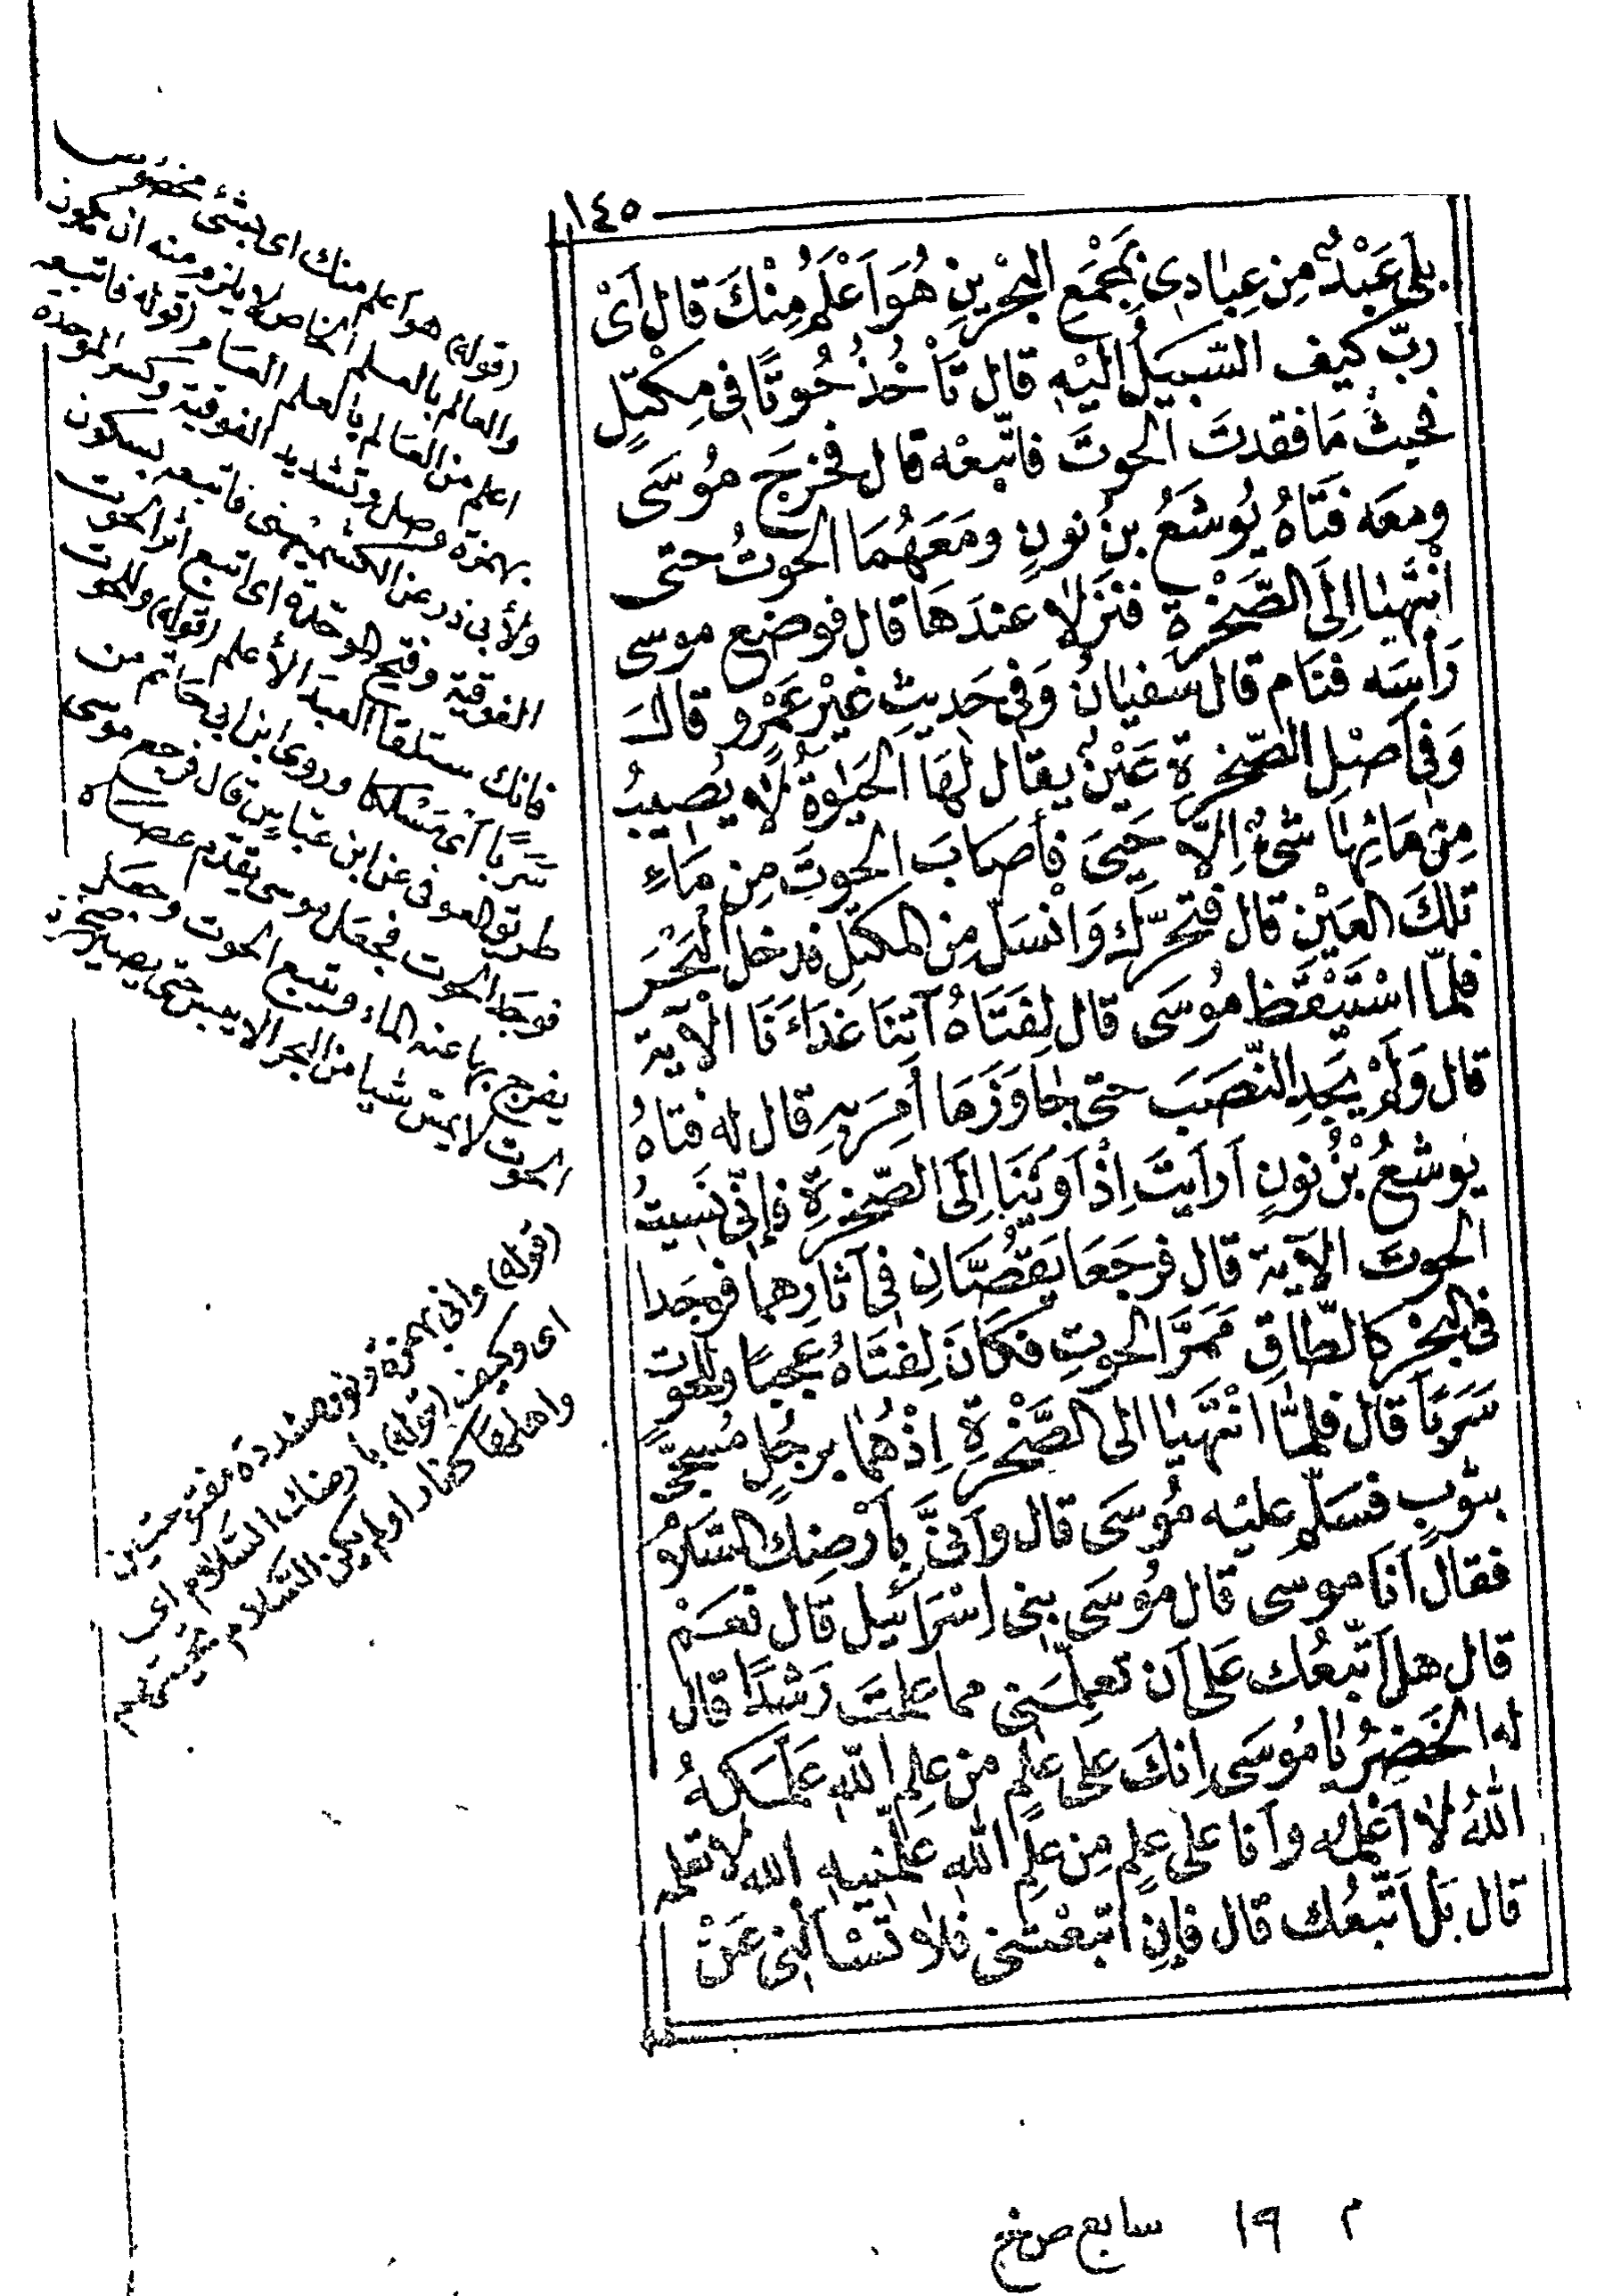 ١٤٥
بَلَى عَبْدٌ مِن عِبَادِى بِمَجْمَعِ البَحْرَيْنِ هُوَ اَعْلَمُ مِنْكَ قال اَىْ
رَبِّ كيف السَّبِيلُ اليْهِ قال تَأْخُذُ حُوتًا فى مِكْتَلٍ
فحيثُ مَا فقدتَ الحوتَ فاتَّبِعْهُ قال فخرَجَ مُوسَى
ومعَه فَتَاهُ يُوشَعُ بنُ نُونٍ ومَعَهُمَا الحوتُ حتى
انْتَهَيَا اِلَى الصَّخْرَةِ فنَزَلا عندَهَا قال فوضَع موسى
رَأْسَه فنَام قال سفيانُ وَفى حَدِيثِ غَيْرِ عَمْرٍو قالَ
وَفى اَصْلِ الصَّخرةِ عَيْنٌ يقال لهَا الحَيَوةُ لا يُصِيبُ
مِنْ مَائِهَا شىْءٌ اِلَّا حَيِىَ فأصَابَ الحوتَ مِن مَاءِ
تلكَ العَيْنِ قال فتحرَّكَ وَانْسَلَّ مِنَ المكتلِ فدخل البَحْرَ
فلمّا اسْتَيْقَظ مُوسَى قال لِفَتَاهُ آتِنَا غَدَاءَنَا الْآيةَ
قال وَلَمْ يَجِدِ النَّصَبَ حتى جَاوَزَ مَا أُمِرَ بِهِ قال له فتاهُ
يُوشَعُ بْنُ نُونٍ اَرَاَيْتَ اِذْ اَوَيْنَا اِلَى الصَّخرةِ فَإِنِّى نَسِيتُ
الحوتَ الآيةَ قال فرجَعَا يَقُصَّانِ فى آثارِهما فوجَدا
فى البَحْرِ كالطّاقِ مَمَرَّ الحوتِ فكَانَ لِفَتَاهُ عَجَبًا وللحوتِ
سَرَبًا قال فلمَّا انْتَهَيَا الى الصَّخْرةِ اِذْ هُمَا برجُلٍ مُسَجًّى
بثَوْبٍ فسَلَّم عليْه مُوسَى قال وَاَنَّى بِاَرْضِكَ السَّلامُ
فقال اَنَا موسى قال مُوسَى بنى اِسْرَائِيل قال نَعَمْ
قال هل اَتَّبِعُك عَلى اَن تعلِّمَنِى مما علمتَ رَشَدًا قال
له الخَضِرُ يَا مُوسَى اِنكَ على علمٍ من علمِ اللّٰهِ عَلَّمَكَهُ
اللّٰهُ لَا اَعْلَمُه وَاَنا على علمٍ مِن علمِ اللّٰه علَّمنِيهِ الله لا تعلمه
قال بَل اَتَّبِعُك قال فَإِنِ اتَّبَعْتَنِى فَلا تَسْاَلْنِى عَنْ
(قوله) هو اعلم منك اى بشئ مخصوص
والعالم بالعلم الخاص لا يلزم منه ان يكون
اعلم من العالم بالعلم العام (قوله فاتبعه
بهمزة وصل وتشديد الفوقية وكسر الموحدة
ولأبى ذر عن الكشميهنى فاتبعه بسكون
الفوقية وفتح الموحدة اى اتبع اثر الحوت
فانك ستلقا العبد الأعلم (قوله) وللحوت
سَرَبًا اى مسلكا وروى ابن ابى حاتم من
طريق العوفى عن ابن عباس قال فرجع موسى
فوجد الحوت فجعل موسى يقدم عصاه
يفرج بها عنه الماء ويتبع الحوت وجعل
الحوت لا يمس شيا من البحر الا يبس حتى يصير صخرة
(قوله) وانى بهمزة ونون مشددة مفتوحتين
اى وكيف (قوله) بارضك السلام اى
واهلها كفار اولم يكن السلام تحيتهم
م ١٩ سابع ص خ